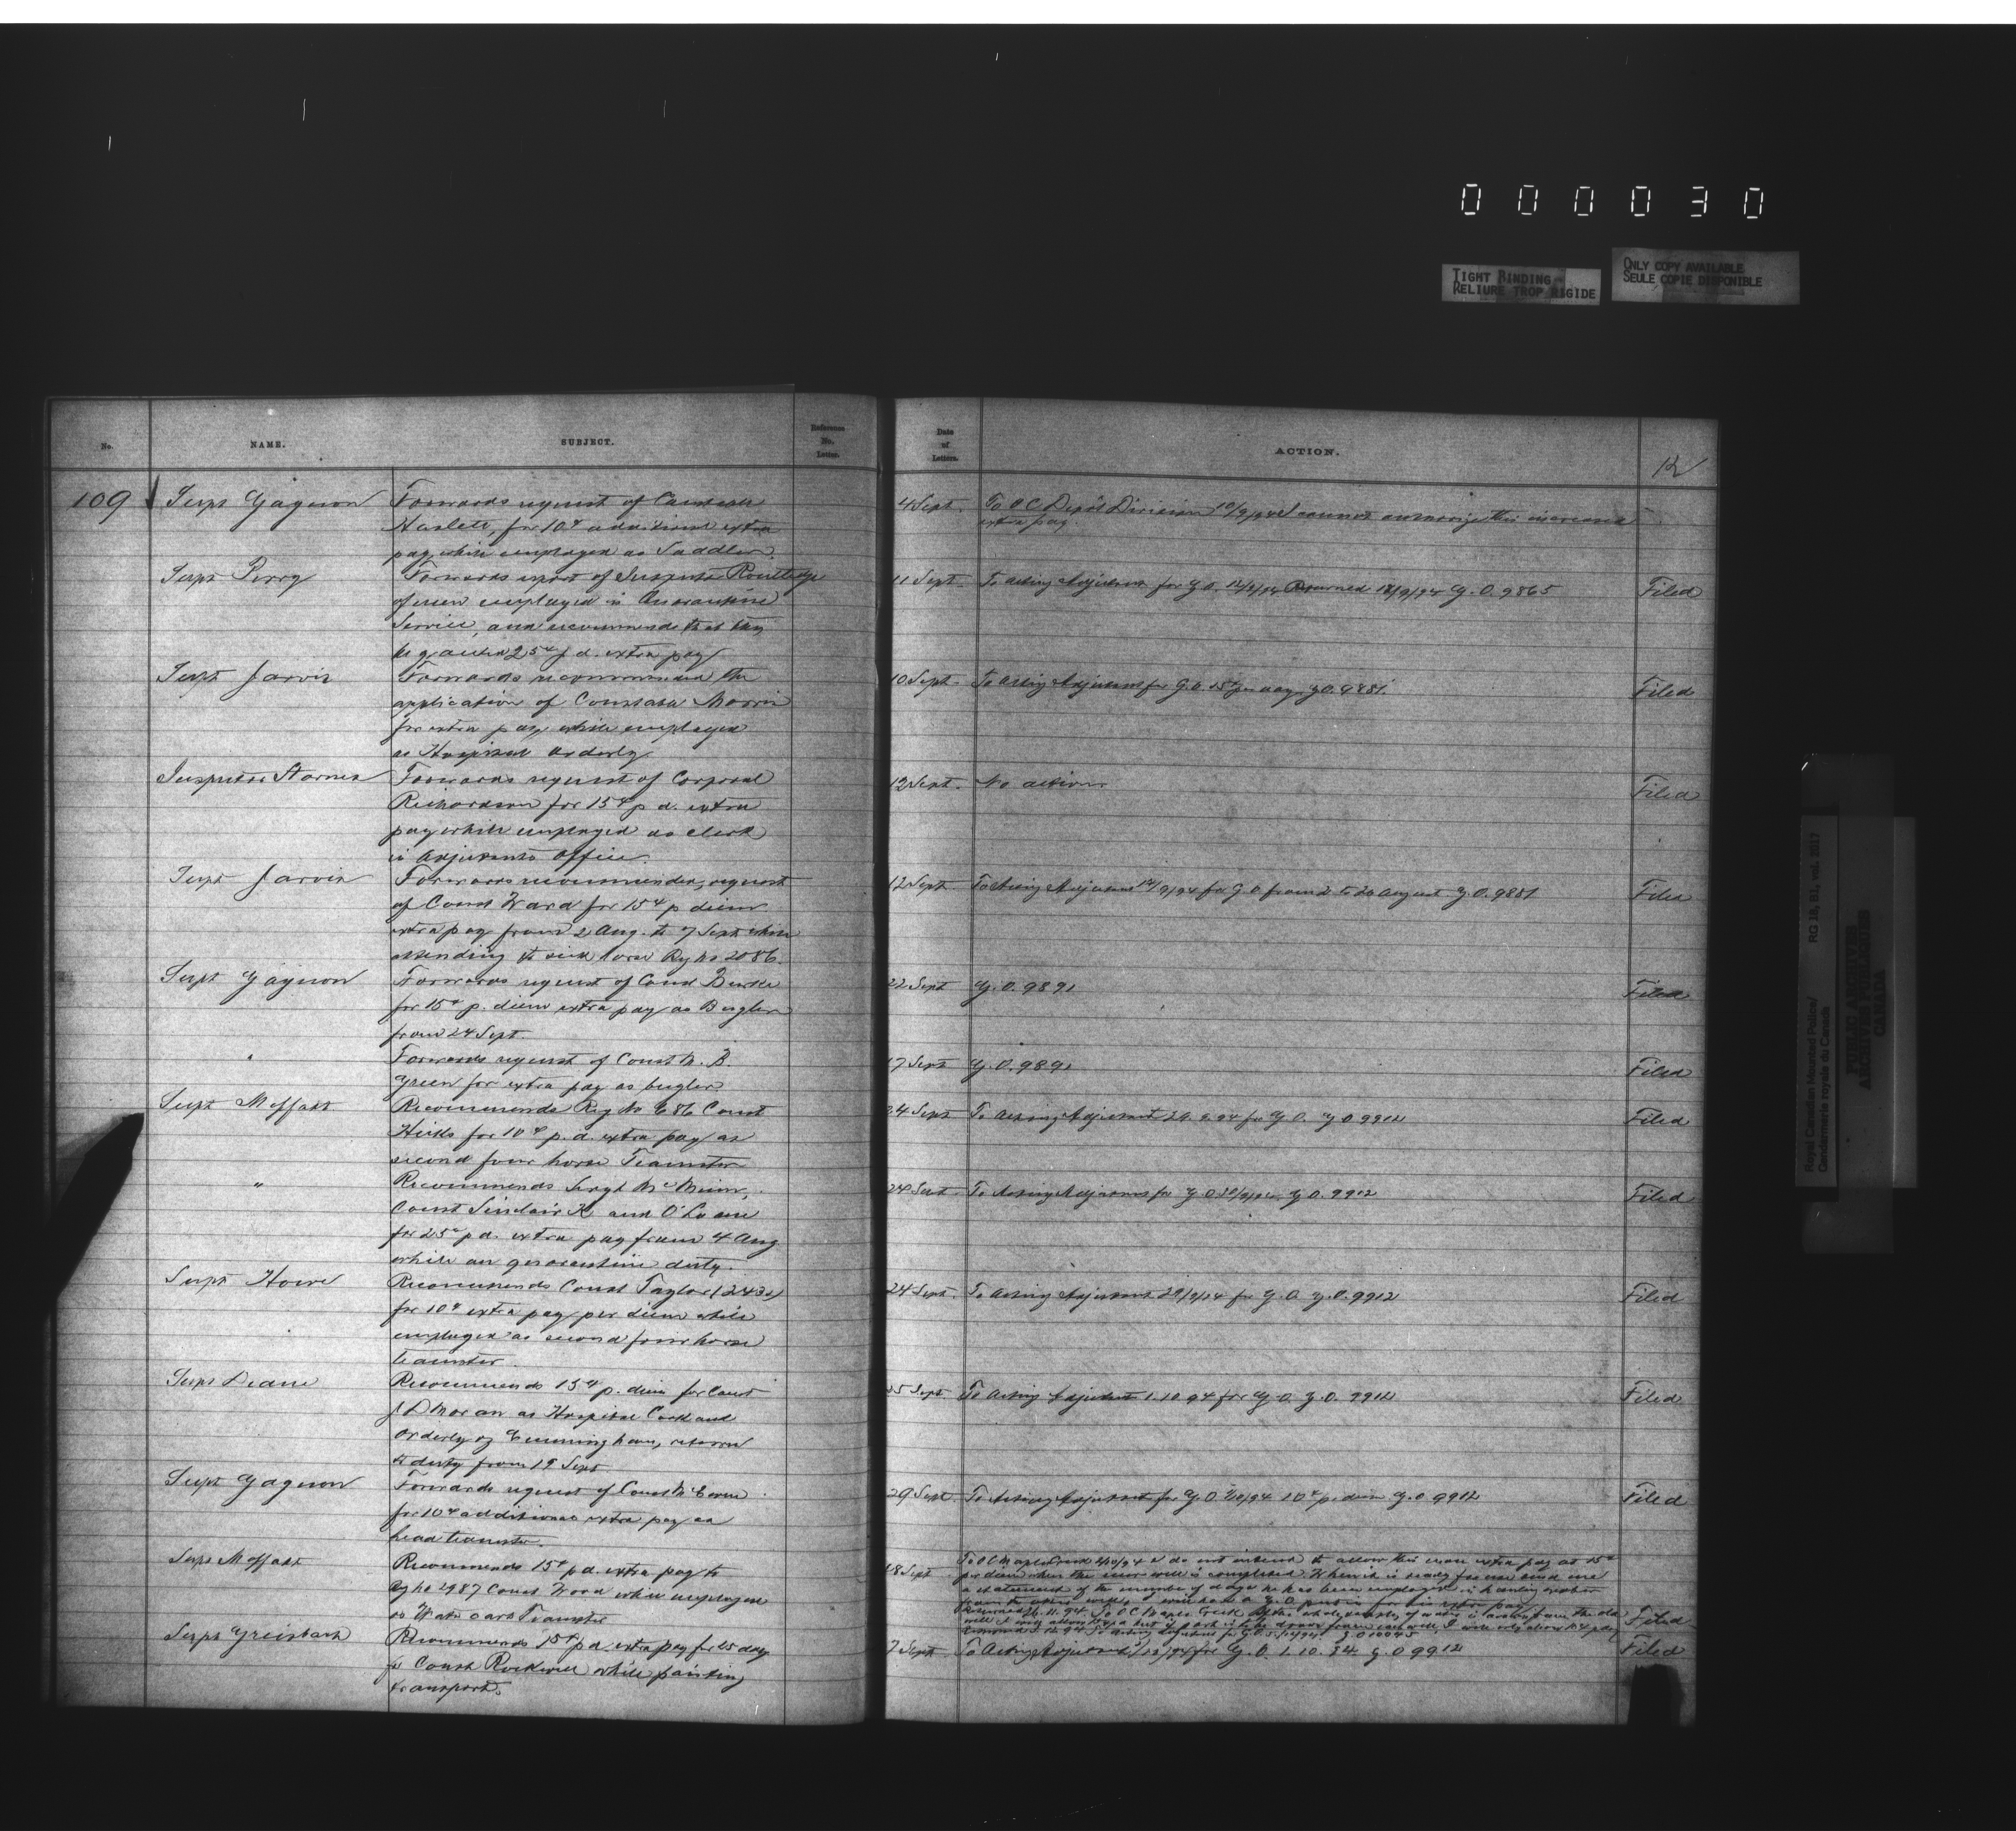 0 0 0 0 3 0
TIGHT BINDING
RELIURE TROP RIGIDE
ONLY COPY AVAILABLE
SEULE COPIE DISPONIBLE
No.
NAME.
SUBJECT.
Reference
No.
Letter.
Date
of
Letters.
ACTION.
12
109
Supt Gagnon
Forwards request of Constable
Haslett, for 10¢ additional extra
pay while employed as Saddler.
4 Sept.
To O C Depôt Division 10/9/94 I cannot authorize this increased
extra pay.
Supt Perry
Forwards report of Inspector Routledge
of men employed in Quarantine
Service, and recommends that they
be granted 25¢ p d. extra pay
11 Sept.
To Acting Adjutant for G.O. Returned G.O. 9865
Filed
Supt Jarvis
Forwards recommended the
application of Constable Morris
for extra pay while employed
as Hospital orderly
10 Sept.
To Acting Adjutant for G.O. 15¢ per day G.O. 9851
Filed
Inspector Starnes
Forwards request of Corporal
Richardson for 15¢ p d. extra
pay while employed as clerk
in Adjutants office.
12 Sept.
No action
Filed
Supt Jarvis
Forwards recommended, request
of Const Ward for 15¢ p diem
extra pay from 2 Aug. to 7 Sept while
attending to sick horse Rg No 2086.
12 Sept.
To Acting Adjutant for G O from 2 to 20 August G.O. 9851
Filed
Supt Gagnon
Forwards request of Const Burke
for 15¢ p. diem extra pay as Bugler
from 24 Sept.
22 Sept
G.O. 9891
Filed
"
Forwards request of Const M. B.
Green for extra pay as bugler
17 Sept
G.O. 9891
Filed
Supt Moffatt
Recommends Reg No 686 Const
Hicks for 10¢ p. d. extra pay as
second four horse Teamster
24 Sept
To Acting Adjutant for G.O. G O 9912
Filed
"
Recommends Sergt McMinn,
Const Sinclair K and O'Loane
for 25¢ p d. extra pay from 4 Aug
while on quarantine duty.
24 Sept.
To Acting Adjutant for G.O. G.O. 9912
Filed
Supt Howe
Recommends Const Taylor (
for 10¢ extra pay per diem while
employed as second four horse
teamster.
24 Sept.
To Acting Adjutant 29/9/94 for G.O. G.O. 9912
Filed
Supt Deane
Recommends 15¢ p. diem for Const
J D Moran as Hospital Cook and
Orderly return
to duty from 19 Sept
25 Sept
To Acting Adjutant 1.10.94 for G.O. G.O. 9912
Filed
Supt Gagnon
Forwards request of Const
for 10¢ additional extra pay as
head teamster.
29 Sept
To Acting Adjutant for G.O. 10¢ p. diem G.O 9912
Filed
Supt Moffatt
Recommends 15¢ p d. extra pay to
Rg No 2987 Const Wood while employed
as Water cart Teamster
28 Sept.
To O C Maple Creek I do not intend to allow this man extra pay at 15¢
per diem when the new well is completed. When it is ready for use send me
a statement of the number of days he has been employed in hauling water
from the other wells, I will have a G.O put in for his extra pay
To O C Maple Creek
G.O 10045
Filed
Supt Griesbach
Recommends 15¢ p d extra pay for 25 days
for Const Rockwell while painting
transport.
7 Sept
To Acting Adjutant for G.O. 1.10.94. G.O 9912
Filed
Royal Canadian Mounted Police/
Gendarmerie royale du Canada
RG 18, B1, vol. 2017
PUBLIC ARCHIVES
ARCHIVES PUBLIQUES
CANADA